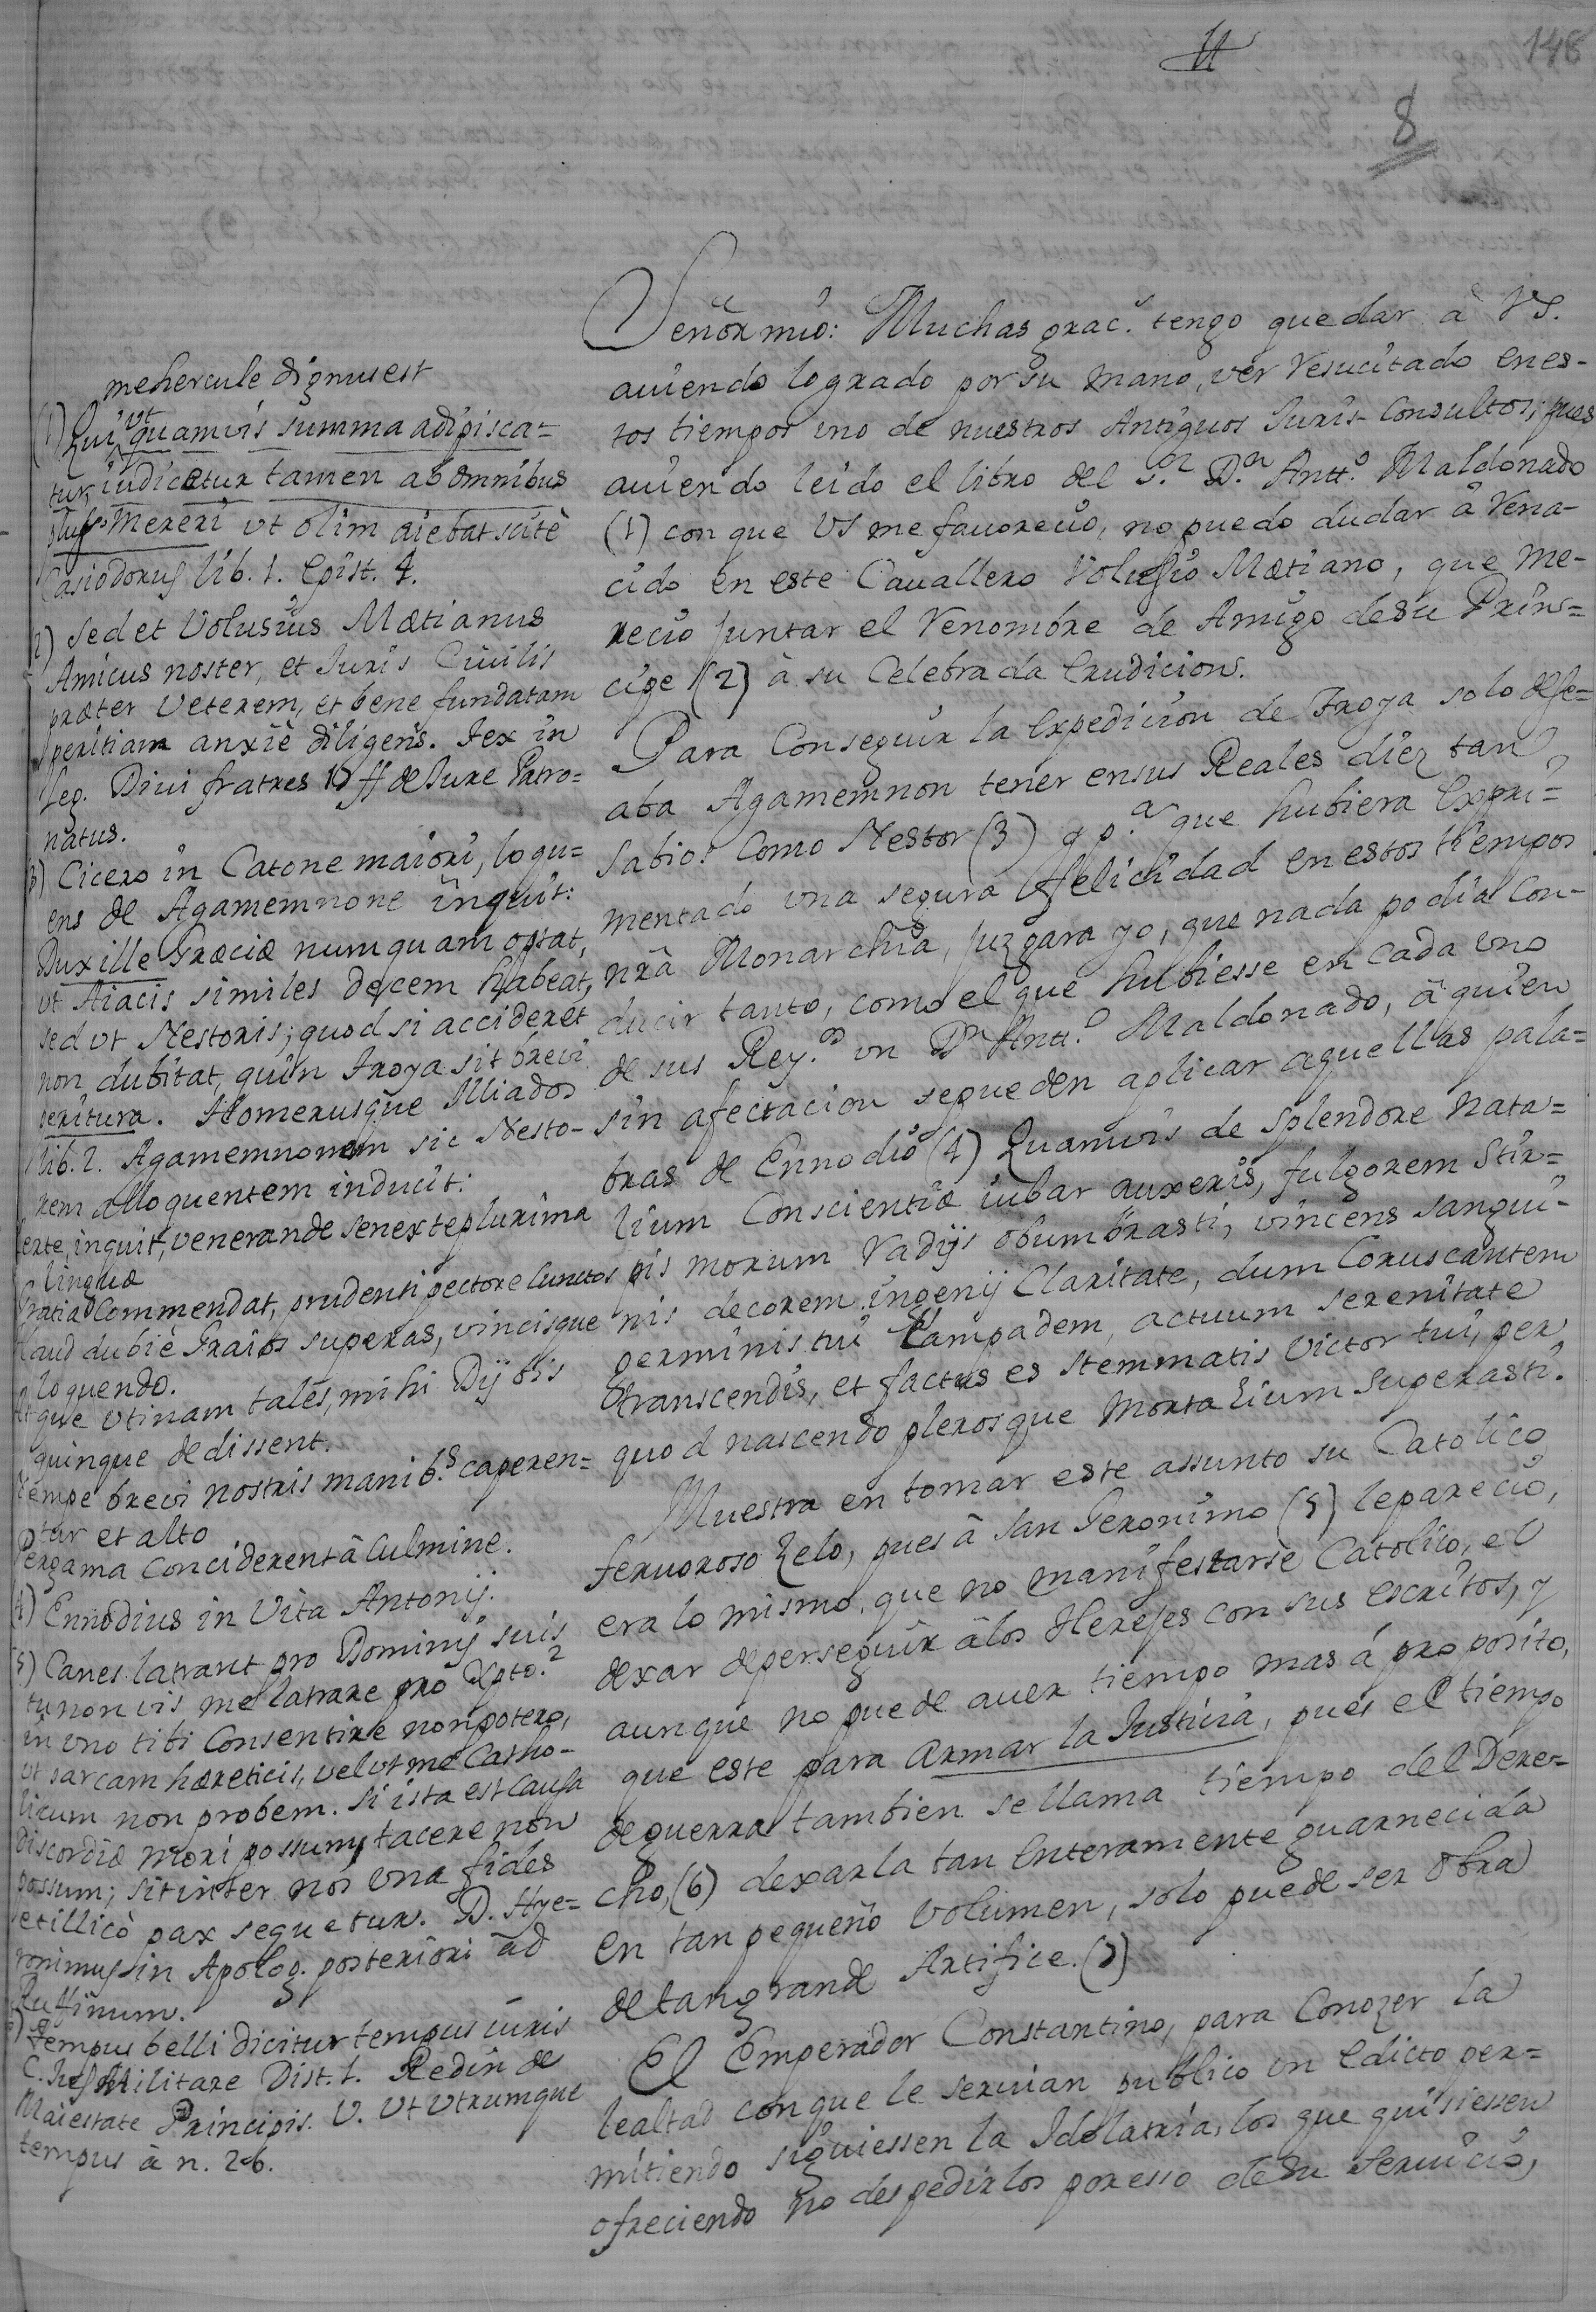 146
8
Señor mio: Muchas grac.s tengo que dar à VS.
auiendo logrado por su mano, ver Resucitado en es-
tos tiempos uno de nuestros Antiguos Juris-Consultos; pues
auiendo leido el libro del S.r D.n Antt.o Maldonado
(1) con que VS me fauoreció, no puedo dudar à Rena-
cido en este Cauallero Volusio Mætiano, que me-
recio juntar el Renombre de Amigo de su Prin-
cipe (2) à su Celebrada Erudicion.
Para Conseguir la Expedicion de Troya solo dese=
aba Agamemnon tener en sus Reales diez tan
Sabios como Nestor (3) y p.a que hubiera Expri=
mentado una segura felicidad en estos tiempos
nrâ Monarchia, juzgara yo, que nada podia Con-
ducir tanto, como el que hubiesse en cada uno
de sus Rey.os un D.n Antt.o Maldonado, à quien
sin afectacion se pueden aplicar aquellas pala=
bras de Ennodio (4) Quamvis de splendore nata=
lium Conscientiæ iubar auxeris, fulgorem stir=
pis morum Radijs obumbrasti, vincens sangui-
nis decorem ingenij Claritate, dum Coruscantem
germinis tui Lampadem, actuum serenitate
transcendis, et factus es stemmatis Victor tui, per
quod nascendo plerosque Mortalium Superasti.
Muestra en tomar este assunto su Catolico
feruoroso Zelo, pues à San Geronimo (5) le pareció,
era lo mismo, que no manifestarse Catolico, el
dexar de perseguir à los Herejes con sus escritos, y
aunque no puede auer tiempo mas á proposito,
que este para armar la Justicia, pues el tiempo
de guerra tambien se llama tiempo del Dere-
cho, (6) dexarla tan Enteramente guarnecida
en tan pequeño Volumen, solo puede ser Obra
de tan grande Artifice. (7)
El Emperador Constantino, para Conozer la
lealtad con que le seruian publico un Edicto per=
mitiendo siguiessen la Idolatria, los que quisiessen
ofreciendo no despedirlos por esso de su seruicio,
mehercule dignus est
(1) Qui ut quamvis summa adipisca=
tur, iudicetur tamen ab omnibus
plus mereri ut olim aiebat scitè
Casiodorus lib. 1. Epist. 4.
(2) Sed et Volusius Mætianus
Amicus noster, et Juris Civilis
præter Veterem, et bene fundatam
peritiam anxiè diligens. Tex in
Leg. Divi fratres 17 ff de Jure Patro=
natus.
(3) Cicero in Catone maiori, loqu=
ens de Agamemnone inquit:
Dux ille Græciæ numquam optat,
ut Aiacis similes decem habeat,
sed ut Nestoris; quod si accideret
non dubitat, quin Troya sit brevi
peritura. Homerusque Illiados
lib. 2. Agamemnonem sic Nesto-
rem alloquentem inducit:
Certe, inquit, venerande senex te plurima
linguæ
Gratia Commendat, prudenti pectore Cunctos
Haud dubiè Graios superas, vincisque
loquendo.
Atque utinam tales, mihi Dij bis
quinque dedissent.
Nempe brevi nostris manib.s caperen=
tur et alto
Pergama Conciderent à Culmine.
(4) Ennodius in Vita Antonij.
(5) Canes latrant pro Dominis suis
tu non vis, me latrare pro Xpto.?
in uno tibi Consentire non potero,
ut parcam hæreticis, vel ut me Catho-
licum non probem. Si ista est Causa
discordiæ mori possum, tacere non
possum; sit inter nos una fides
et illicò pax sequetur. D. Hye=
ronimus in Apolog. posteriori ad
Ruffinum.
(6) Tempus belli dicitur tempus iuris
C. Jus Militare Dist. 1. Redin de
Maiestate Principis. V. Ut Utrumque
tempus à n. 26.